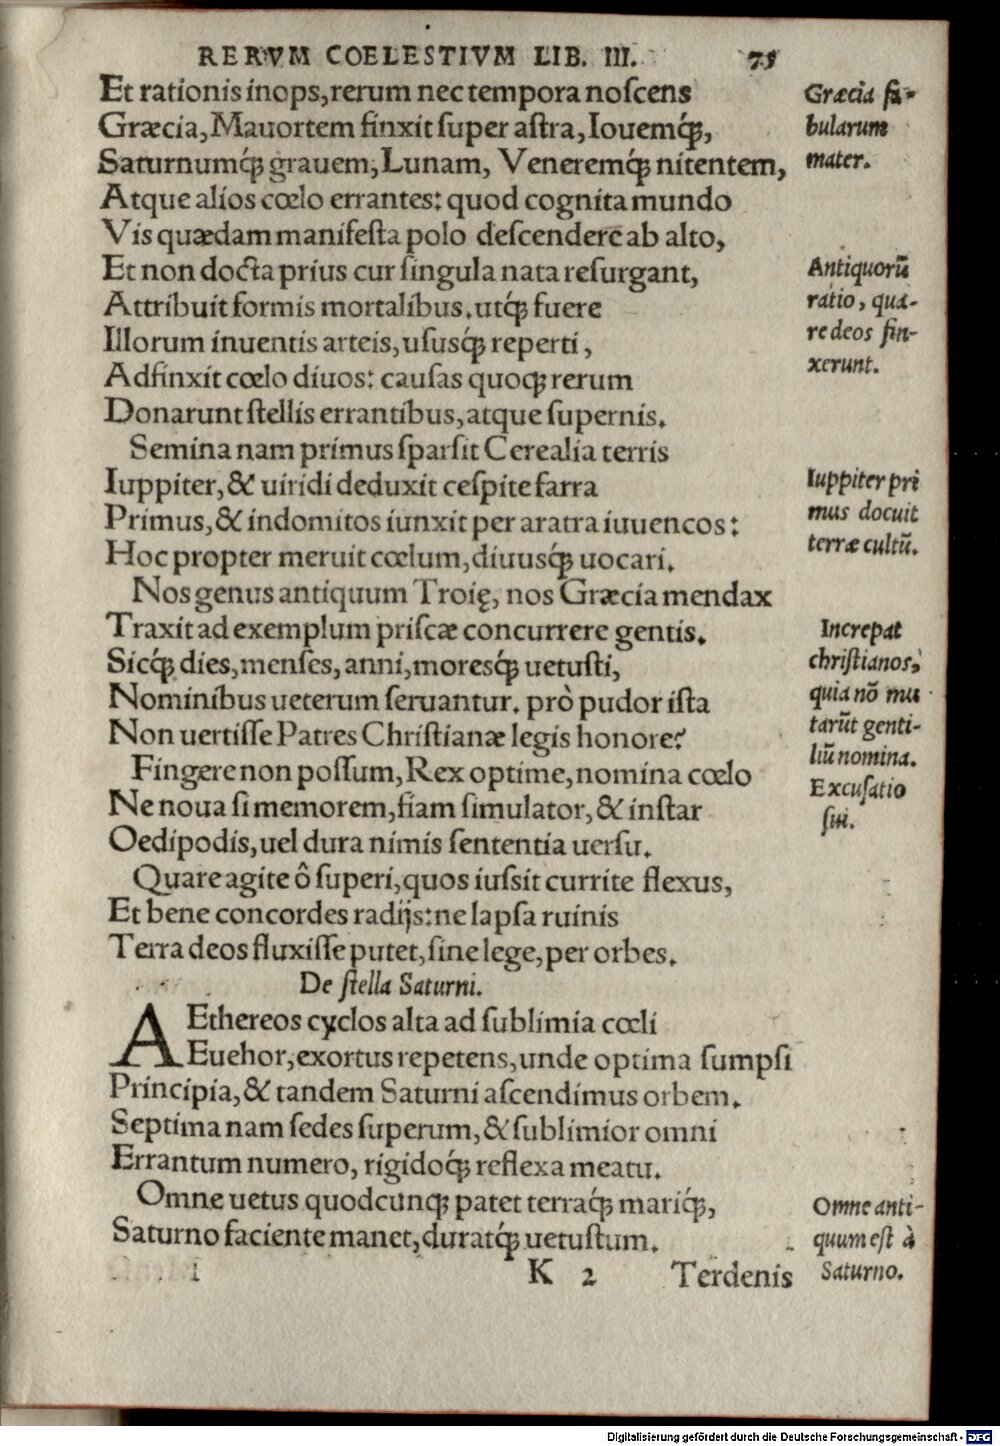 RERVM COELESTIVM LIB. III. 75
Et rationis inops, rerum nec tempora noſcens
Græcia, Mauortem finxit ſuper aſtra, Iouemq́;,
Saturnumq́; grauem, Lunam, Veneremq́; nitentem,
Atque alios cœlo errantes: quod cognita mundo
Vis quædam manifeſta polo deſcendere ab alto,
Et non docta prius cur ſingula nata reſurgant,
Attribuit formis mortalibus. utq́; fuere
Illorum inuentis arteis, uſusq́; reperti,
Adfinxit cœlo diuos: cauſas quoq; rerum
Donarunt ſtellis errantibus, atque ſupernis.
Semina nam primus ſparſit Cerealia terris
Iuppiter, & uiridi deduxit ceſpite farra
Primus, & indomitos iunxit per aratra iuuencos:
Hoc propter meruit cœlum, diuusq́; uocari.
Nos genus antiquum Troię, nos Græcia mendax
Traxit ad exemplum priſcæ concurrere gentis.
Sicq́; dies, menſes, anni, moresq́; uetuſti,
Nominibus ueterum ſeruantur. prò pudor iſta
Non uertiſſe Patres Chriſtianæ legis honore?
Fingere non poſſum, Rex optime, nomina cœlo
Ne noua ſi memorem, fiam ſimulator, & inſtar
Oedipodis, uel dura nimis ſententia uerſu.
Quare agite ô ſuperi, quos iuſsit currite flexus,
Et bene concordes radijs: ne lapſa ruinis
Terra deos fluxiſſe putet, ſine lege, per orbes.
De ſtella Saturni.
AEthereos cyclos alta ad ſublimia cœli
Euehor, exortus repetens, unde optima ſumpſi
Principia, & tandem Saturni aſcendimus orbem.
Septima nam ſedes ſuperum, & ſublimior omni
Errantum numero, rigidoq́; reflexa meatu.
Omne uetus quodcunq; patet terraq́; mariq́;,
Saturno faciente manet, duratq́; uetuſtum.
K 2 Terdenis
Græcia fa-
bularum
mater.
Antiquorũ
ratio, qua-
re deos fin-
xerunt.
Iuppiter pri
mus docuit
terræ cultũ.
Increpat
chriſtianos,
quia nõ mu
tarũt genti-
liũ nomina.
Excuſatio
ſui.
Omne anti-
quum eſt à
Saturno.
Digitalisierung gefördert durch die Deutsche Forschungsgemeinschaft - DFG